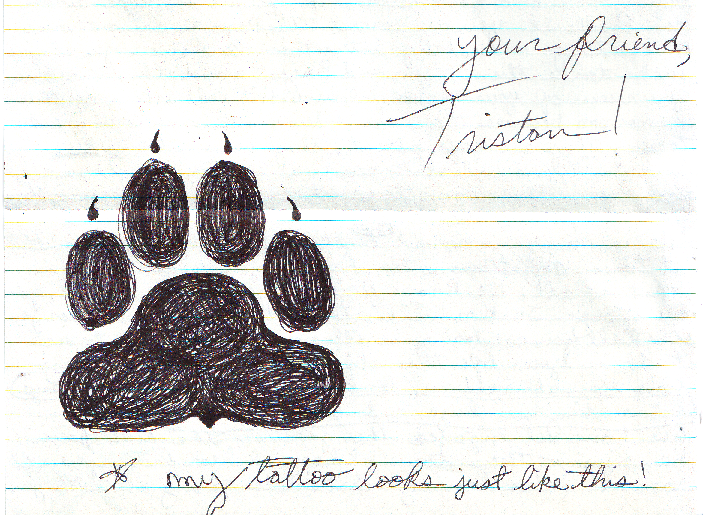 your friend,
Tristan!
* my tattoo looks just like this!